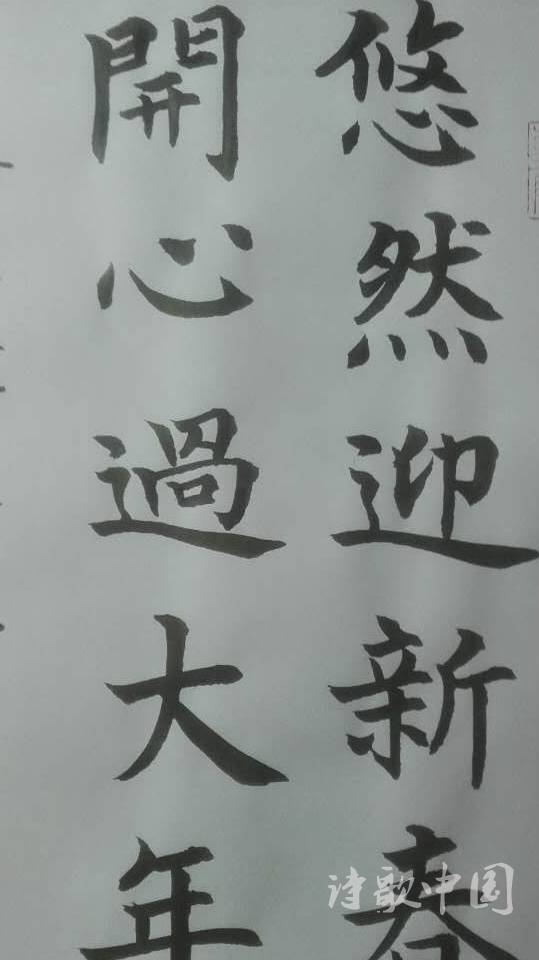 悠然迎新春
開心過大年
诗歌中国